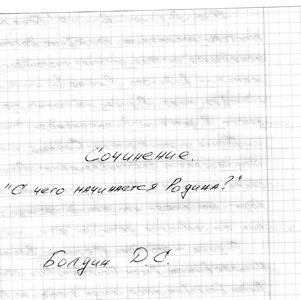 Сочинение.
"С чего начинается Родина?"
Болдин Д.С.